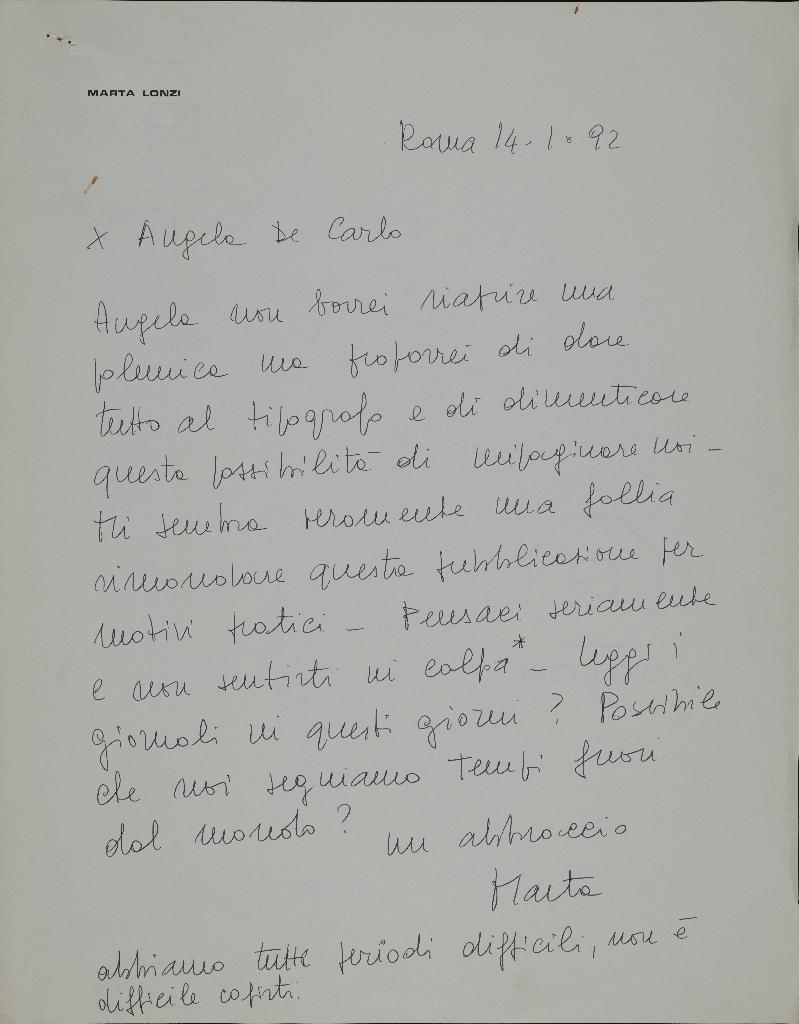 MARTA LONZI
Roma 14-1-92
x Angela De Carlo
Angela non vorrei riaprire una
polemica ma proporrei di dare
tutto al tipografo e di dimenticare
questa possibilità di impaginare noi -
Mi sembra veramente una follia
rimandare questa pubblicazione per
motivi pratici - Pensaci seriamente
e non sentirti in colpa* - Leggi i
giornali in questi giorni? Possibile
che noi seguiamo tempi fuori
dal mondo? un abbraccio
Marta
abbiamo tutte periodi difficili, non è
difficile capirti.